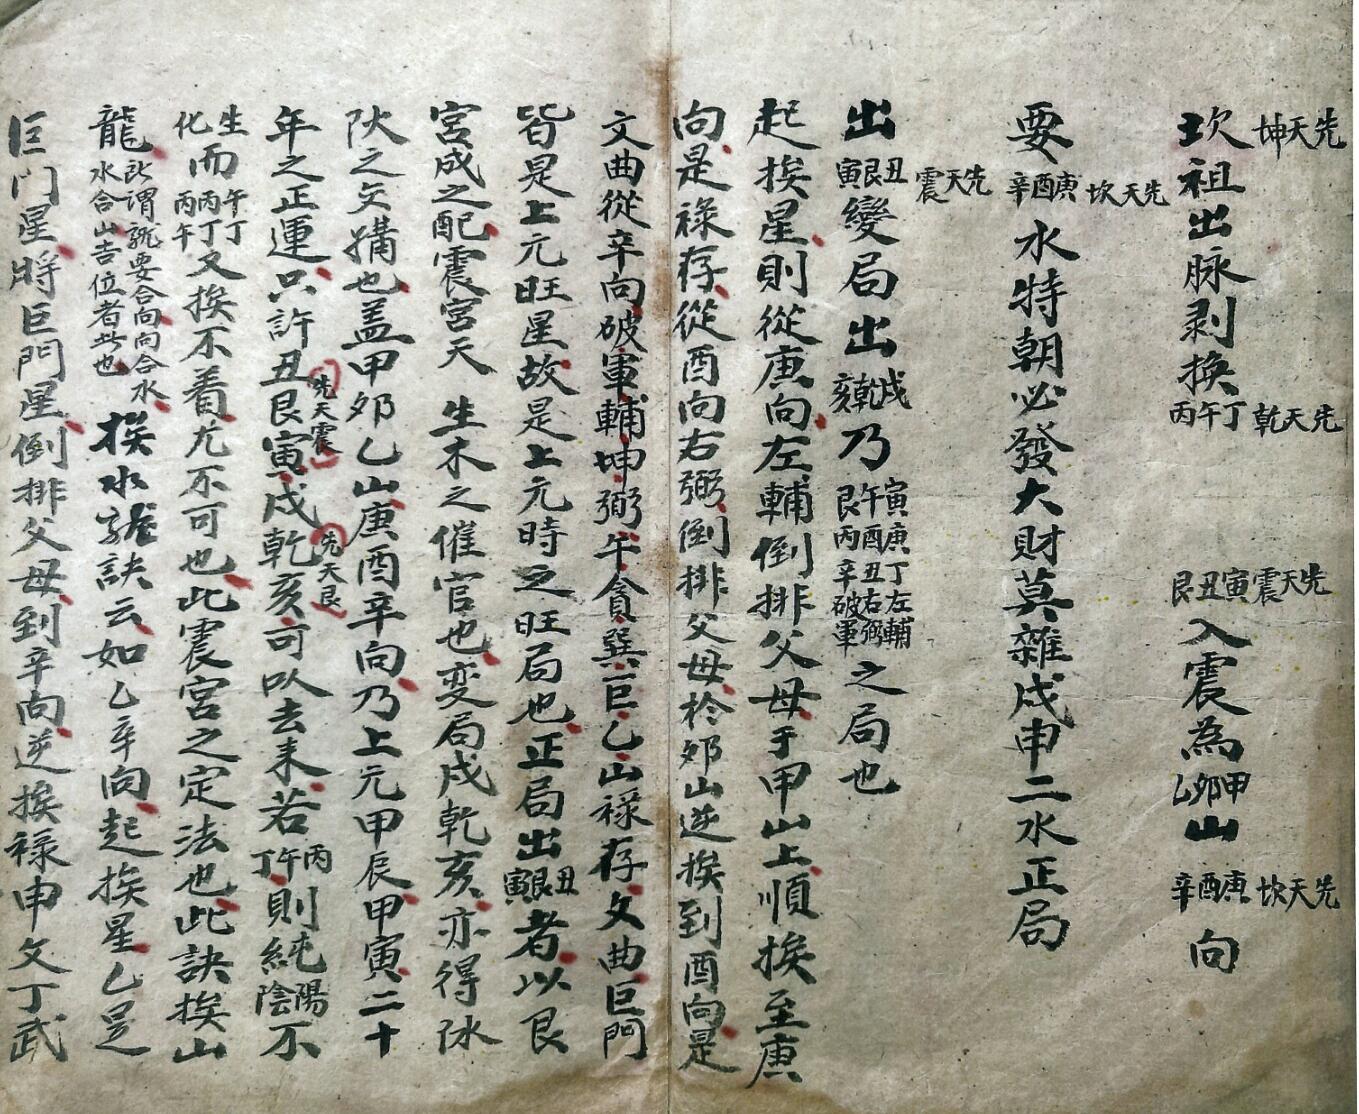 坎先天坤祖出脉剥換丁午丙先天乾 寅丑艮先天震入震為甲卯乙山庚酉辛先天坎向
要庚酉辛先天坎水特朝必發大財莫雜戌申二水正局
出丑艮寅先天震變局出戌乾亥乃寅午艮庚酉丙丁丑辛左輔右弼破軍之局也
起挨星則從庚向左輔倒排父母于甲山上順挨至庚
向是祿存從酉向右弼倒排父母於夘山逆挨到酉向是
文曲從辛向破軍輔坤弼午貪巽巨乙山祿存文曲巨門
皆是上元旺星故是上元時之旺局也正局出丑艮寅者以艮
宮成之配震宮天生木之催官也变局戌乾亥亦得阦
阦之交媾也盖甲夘乙山庚酉辛向乃上元甲辰甲寅二十
年之正運只許丑艮寅先天震戌乾亥先天艮可以去来若丙午丁則純陽陰不
生化而午丁丙丁丙午又挨不着尤不可也此震宮之定法也此訣挨山
龍此謂龍要合向向合水水合山吉位者此也挨水龍訣云如乙辛向起挨星乙是
巨门星將巨門星倒排父母到辛向逆挨禄申文丁武